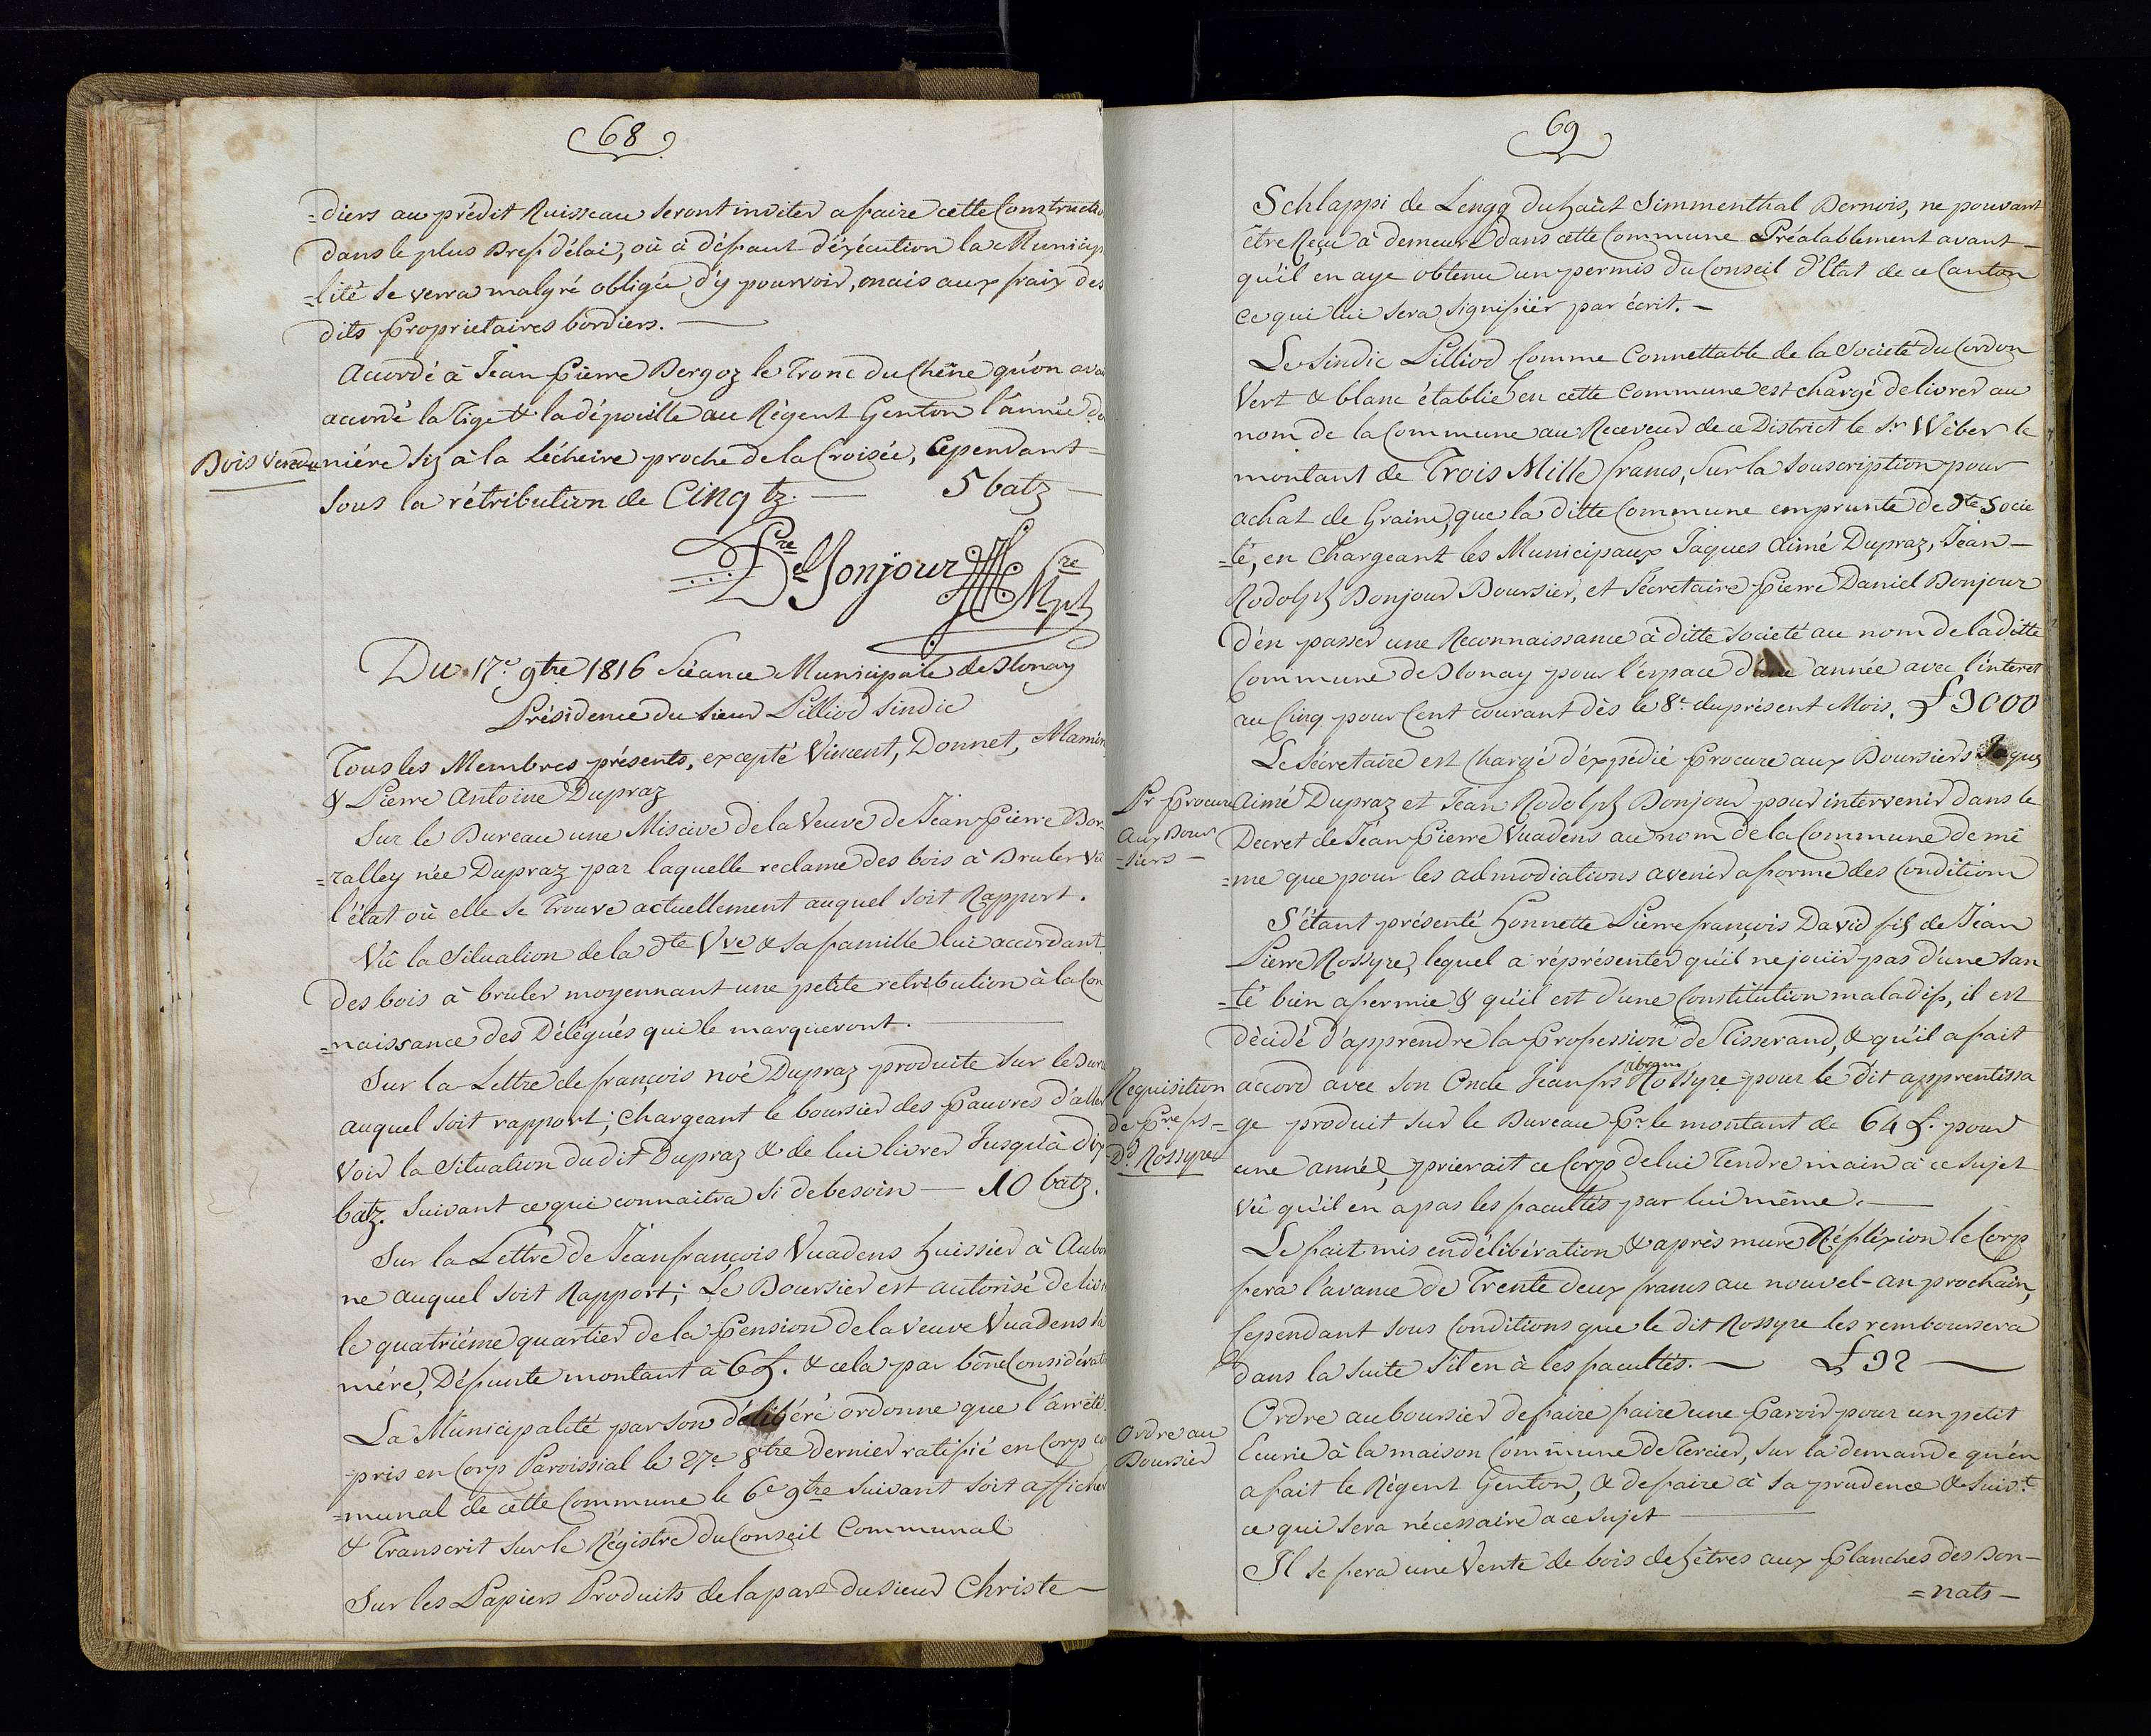 68
=diers au prédit Ruisseau seront inviter a faire cette Constructio
dans le plus Bref délai, où à défaut d'éxécution la Municip
=lité se verra malgré obligée d'y pourvoir, mais aux fraix des
dits Proprietaires bordiers. —
Accordé à Jean Pierre Bergoz le Tronc du Chêne qu'on ava
accordé la Tige & la dépouille au Régent Genton l'année de
Bois Vendu
nière siz à la Lécheire proche de la Croisée, Cependant —
sous la rétribution de Cinq bz. — 5 batz —
Pre Dl Bonjour Sre
Mpl
Du 17e 9tre 1816 Séance Municipale de Blonay
Présidence du Sieur Pilliod Sindic
Tous les Membres présents, excepté Vincent, Donnet, Mamin
& Pierre Antoine Dupraz
Sur le Bureau une Miscive de la Veuve de Jean Pierre Bor=
=ralley née Dupraz par laquelle reclame des bois à Bruler vû
l'état où elle se Trouve actuellement auquel soit Rapport.
Vû la Situation de la dte Vve & sa famille lui accordant
des bois à bruler moyennant une petite retribution à la Con
=naissance des Délégués qui le marqueront. —
Sur la Lettre de françois noé Dupraz produite sur le Bure
auquel soit rapport; Chargeant le boursier des Pauvres d'aller
Voir la Situation du dit Dupraz & de lui livrer Jusqu'à dix
batz. Suivant ce qui connaitra si de besoin — 10 batz.
Sur la Lettre de Jean françois Vuadens huissier à Aubon
ne auquel soit Rapport; Le Boursier est autorisé de livre
le quatriéme quartier de la Pension de la Veuve Vuadens sa
mére, Défunte montant à 6 £. & cela par bône Considérati
La Municipalité par son délibéré ordonne que l'arrêté
pris en Corp Paroissial le 27e 8tre dernier ratifié en Corp co
=munal de cette Commune le 6e 9tre suivant soit affiché
& Transcrit sur le Régistre du Conseil Communal
Sur les Papiers Produits de la part du sieur Christe —
69
Schlappi de Lengg du haût Simmenthal Bernois, ne pouvant
être Reçu à demeure dans cette Commune Préalablement avant —
qu'il en aye obtenu un permis du Conseil d'Etat de ce Canton
ce qui lui sera signifiér par écrit. —
Le Sindic Pilliod Comme Connettable de la Societé du Cordon
Vert & blanc établie en cette Commune est chargé de livrer au
nom de la Commune au Receveur de ce District le Sr Wèber le
montant de Trois Mille francs, sur la souscription pour
achat de Graine, que la ditte Commune emprunte de dte Socie
=té, en chargeant les Municipaux Jaques Aimé Dupraz, Jean —
Rodolph Bonjour Boursier, et Sécretaire Pierre Daniel Bonjour
d'en passer une Reconnaissance à ditte Societé au nom de la ditte
Commune de Blonay pour l'espace d'une année avec l'interet
au Cinq pour Cent courant dès le 8e du présent Mois. £ 3000
Le Sécretaire est Chargé d'éxpédié Procure aux Boursiers Jaques
Pr Procure
Aux Bour
=siers —
Aimé Dupraz et Jean Rodolph Bonjour pour intervenir dans le
Decret de Jean Pierre Vuadens au nom de la Commune de mê
=me que pour les admodiations avenir a forme des Conditions
S'étant présenté honnette Pierre françois David fils de Jean
Pierre Rossyre, lequel a réprésenter qu'il ne joüir pas d'une San
=té bien afermie & qu'il est d'une Constitution maladif, il est
décidé d'apprendre la Profession de Tisserand, & qu'il a fait
Requisition
de Pre fs =
Dd Rossyre
accord avec son Oncle Jean frs abram Rossyre pour le dit apprentissa
ge produit sur le Bureau Pr le montant de 64 £. pour
une année, prierait ce Corp de lui Tendre main à ce sujet
vû qu'il en a pas les facultés par lui même. —
Le fait mis en délibération & après mure Réfléxion le Corp
fera l'avance de Trente deux francs au nouvel-an prochain,
Cependant sous Conditions que le dit Rossyre les remboursera
dans la suite s'il en à les facultés. — £ 32 —
Ordre au
Boursier
Ordre au boursier de faire faire une Paroir pour un petit
Ecurie à la maison Commune de Tercier, sur la demande qu'en
a fait le Régent Genton, & de faire à sa prudence & suivt
ce qui sera nécessaire a ce sujet —
Il se fera une Vente de bois de hêtres aux Planches des Bon —
= nats —